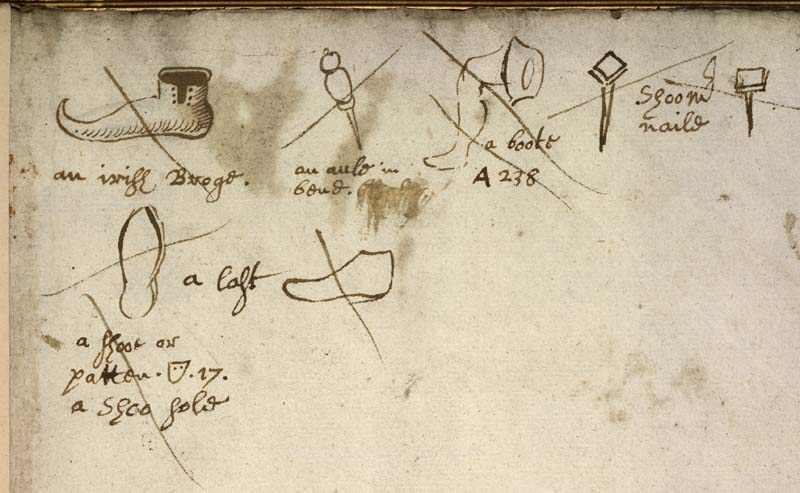 an irish Broge.
an aule in
bend.
a boote
A 238
Shoom
naile
a last
a shooe or
patten . 17.
a Shoo sole